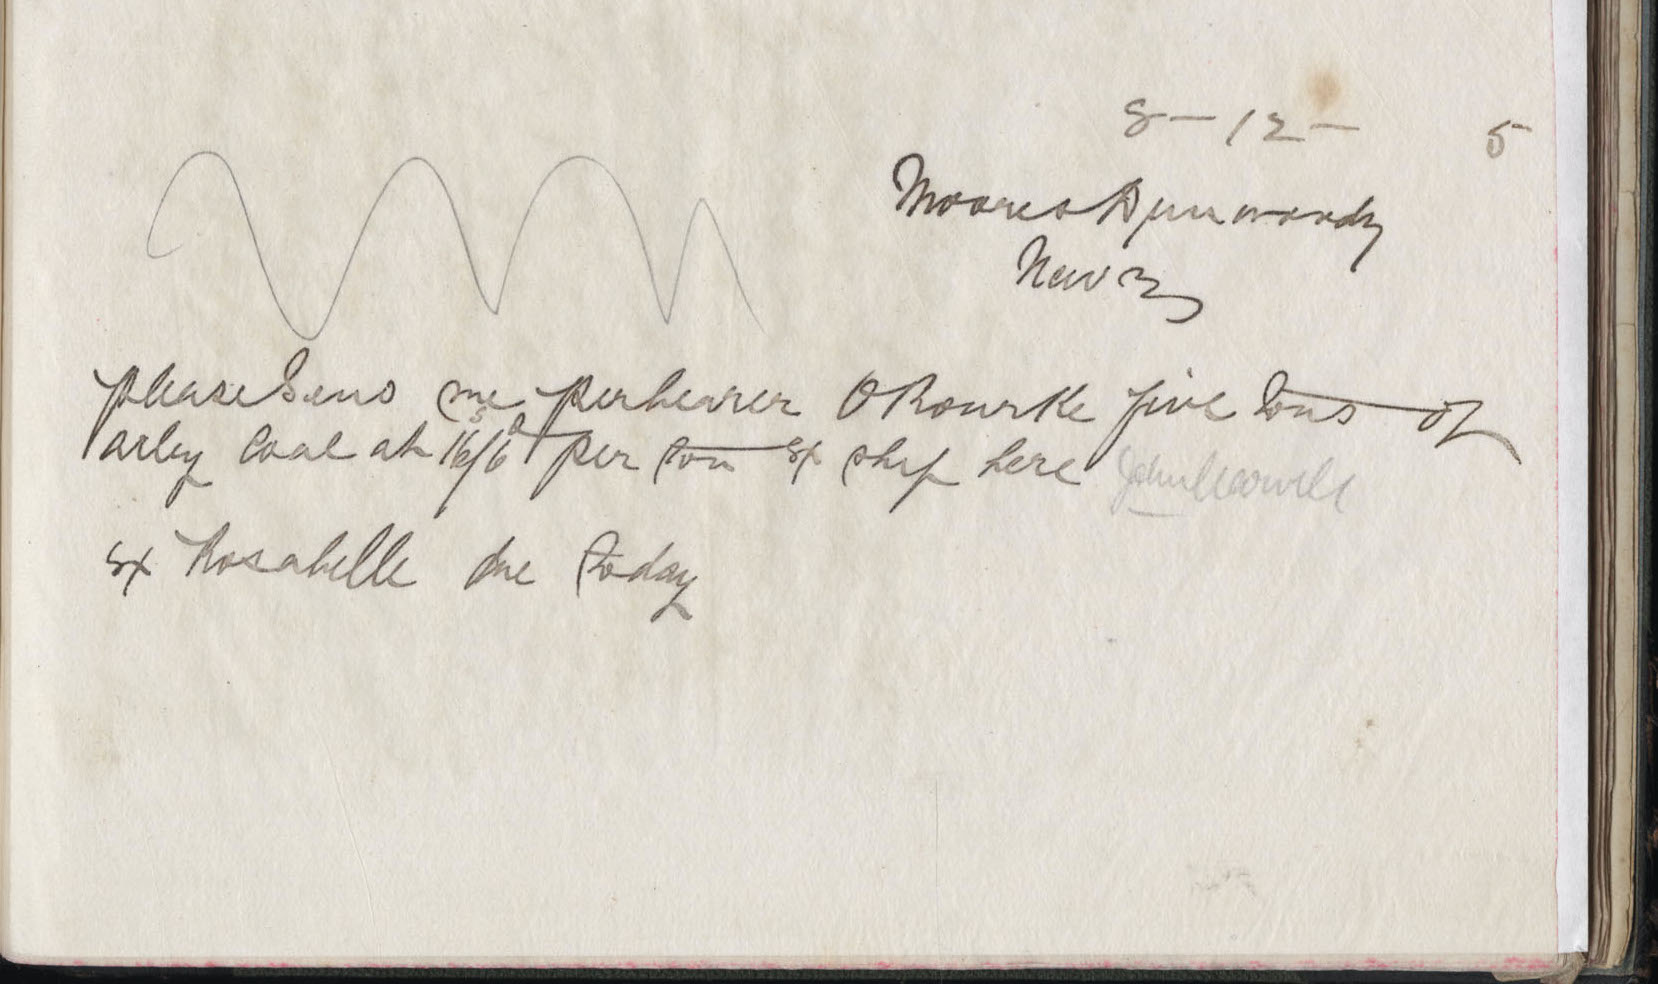 8-12- 5
Moores & Dunwoody
Newry
please send me per bearer O Rourke five tons of
arley coal at 16s/6d per ton ex ship here
ex Rosabelle due today